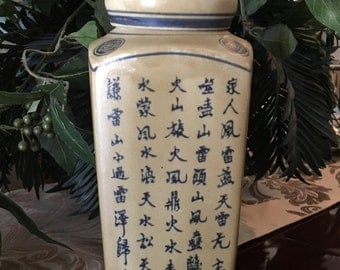 家人風雷益天雷无
噬嗑山雷頤山風蠱
火山旅火風鼎火水未
水蒙風水渙天水訟天
謙雷山小過雷澤歸